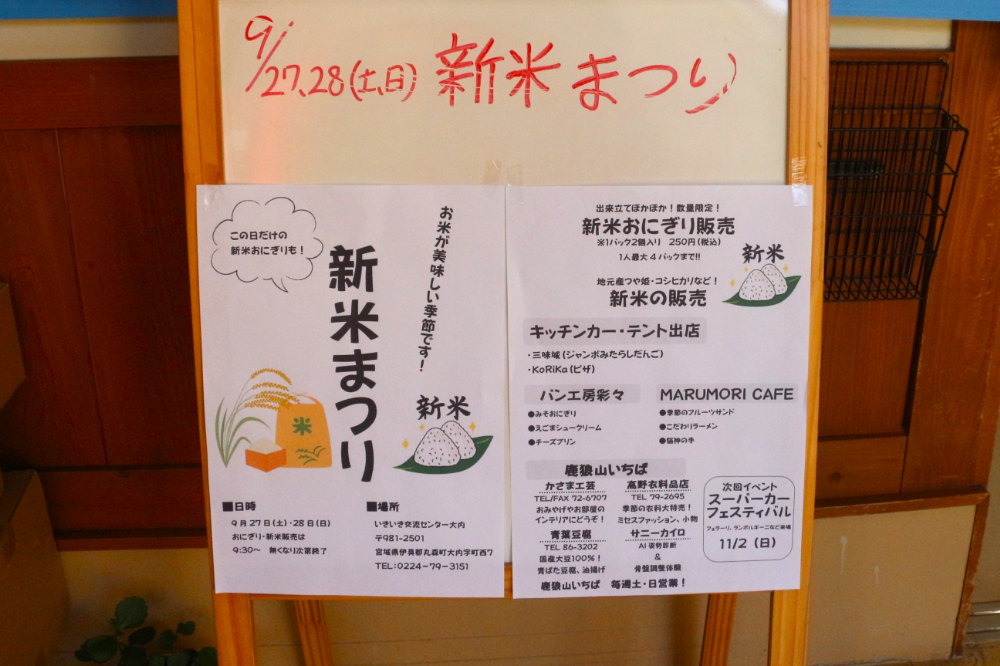 9/27,28(土,日) 新米まつり
この日だけの
新米おにぎりも！
お米が美味しい季節です！
新米まつり
新米
米
■日時
9月27日(土)・28日(日)
おにぎり・新米販売は
9:30～ 無くなり次第終了
■場所
いきいき交流センター大内
〒981-2501
宮城県伊具郡丸森町大内字町西7
TEL:0224-79-3151
出来立てほかほか！数量限定！
新米おにぎり販売
※1パック2個入り 250円(税込)
1人最大4パックまで!!
新米
地元産つや姫・コシヒカリなど！
新米の販売
キッチンカー・テント出店
・三味域(ジャンボみたらしだんご)
・KoRiKa(ピザ)
パン工房彩々
●みそおにぎり
●えごまシュークリーム
●チーズプリン
MARUMORI CAFE
●季節のフルーツサンド
●こだわりラーメン
●猫神の手
鹿狼山いちば
かさま工芸
TEL/FAX 72-6707
おみやげやお部屋の
インテリアにどうぞ！
青葉豆腐
TEL 86-3202
国産大豆100%！
青ばた豆腐、油揚げ
高野衣料品店
TEL 79-2695
季節の衣料大特売！
ミセスファッション、小物
サニーカイロ
AI姿勢診断
&
骨盤調整体験
鹿狼山いちば 毎週土・日営業！
次回イベント
スーパーカー
フェスティバル
フェラーリ、ランボルギーニなど終結
11/2（日）